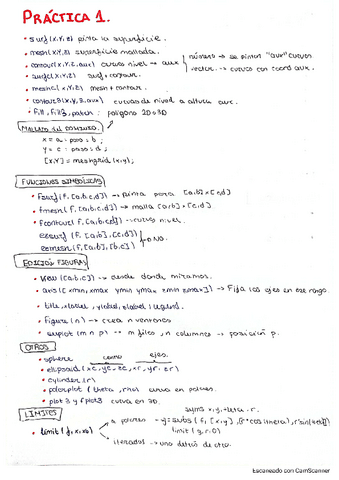 PRÁCTICA 1.
• surf(x,y,z) pinta la superficie.
• mesh(x,y,z) superficie mallada.
• contour(x,y,z,aux) curvas nivel → aux
número → se pintan "aux" curvas
vector → curvas con coord aux.
• surfc(x,y,z) surf + contour.
• meshc(x,y,z) mesh + contour.
• contour3(x,y,z,aux) curvas de nivel a altura aux.
• fill, fill3, patch: polígono 2D o 3D
MALLADO DEL DOMINIO.
x = a : paso : b ;
y = c : paso : d ;
[X,Y] = meshgrid(x,y);
FUNCIONES SIMBÓLICAS
• fsurf(f, [a,b,c,d]) → pinta para [a,b]x[c,d]
• fmesh(f, [a,b,c,d]) → malla [a,b]x[c,d]
• fcontour(f, [a,b,c,d]) → curva nivel.
ezsurf(f, [a,b], [c,d])
ezmesh(f, [a,b], [b,c])
→ NO.
EDICIÓN FIGURAS
• view([a,b,c]) → desde donde miramos.
• axis([xmin, xmax ymin ymax zmin zmax]) → Fija los ejes en ese rango.
• title, xlabel, ylabel, zlabel, legend.
• figure(n) → crea n ventanas
• subplot(m n p) → m filas, n columnas → posición p.
OTROS
• sphere
centro
ejes.
• ellipsoid(xc, yc, zc, xr, yr, zr)
• cylinder(r)
• polarplot(theta, rho) curva en polares.
• plot3 y fplot3 curva en 3D.
LÍMITES
syms x, y, theta, r.
• limit(f, x, x0)
a polares → g = subs(f, [x,y], [r*cos(theta), r*sin(theta)])
limit(g, r, 0)
iterados → uno detrás de otro.
Escaneado con CamScanner